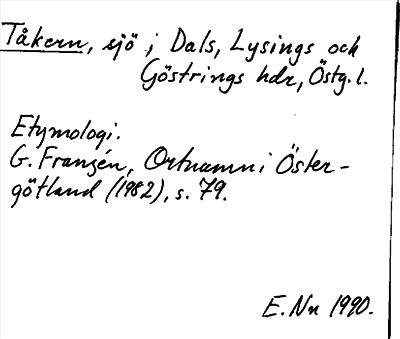 Tåkern, sjö i Dals, Lysings och
Göstrings hdr, Östg. l.
Etymologi.
G. Franzén, Ortnamn i Öster-
götland (1982), s. 79.
E. Nn 1990.